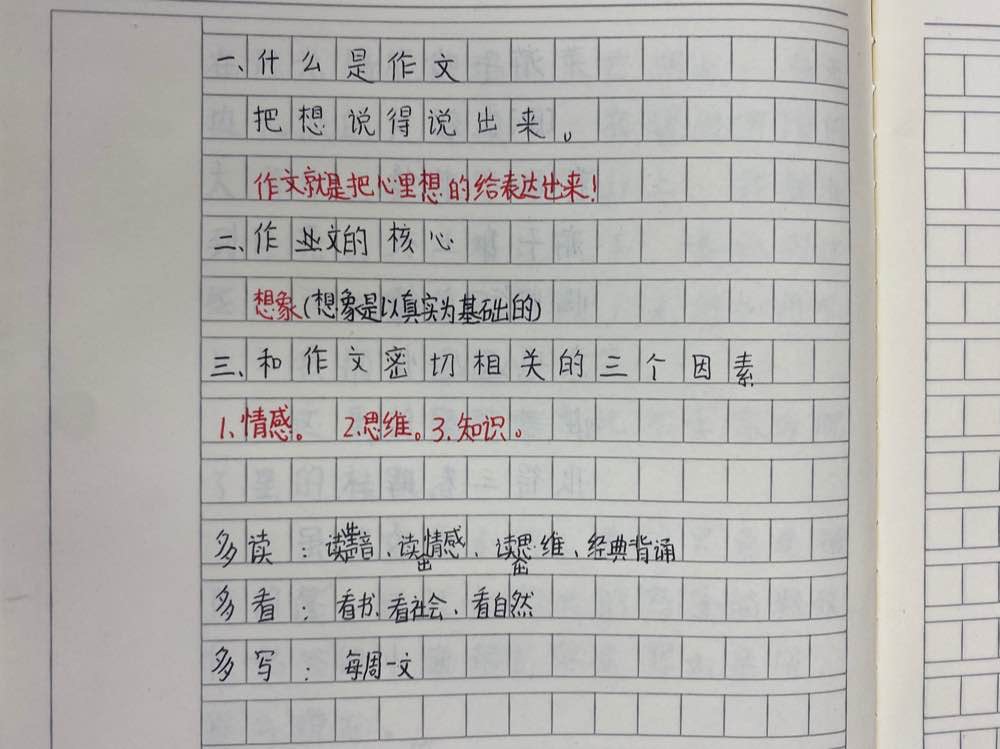 一、什么是作文
把想说得说出来。
作文就是把心里想的给表达出来！
二、作文的核心
想象(想象是以真实为基础的)
三、和作文密切相关的三个因素
1、情感。 2.思维。3.知识。
多读：读出语音、读出情感、读出思维、经典背诵
多看：看书、看社会、看自然
多写：每周一文